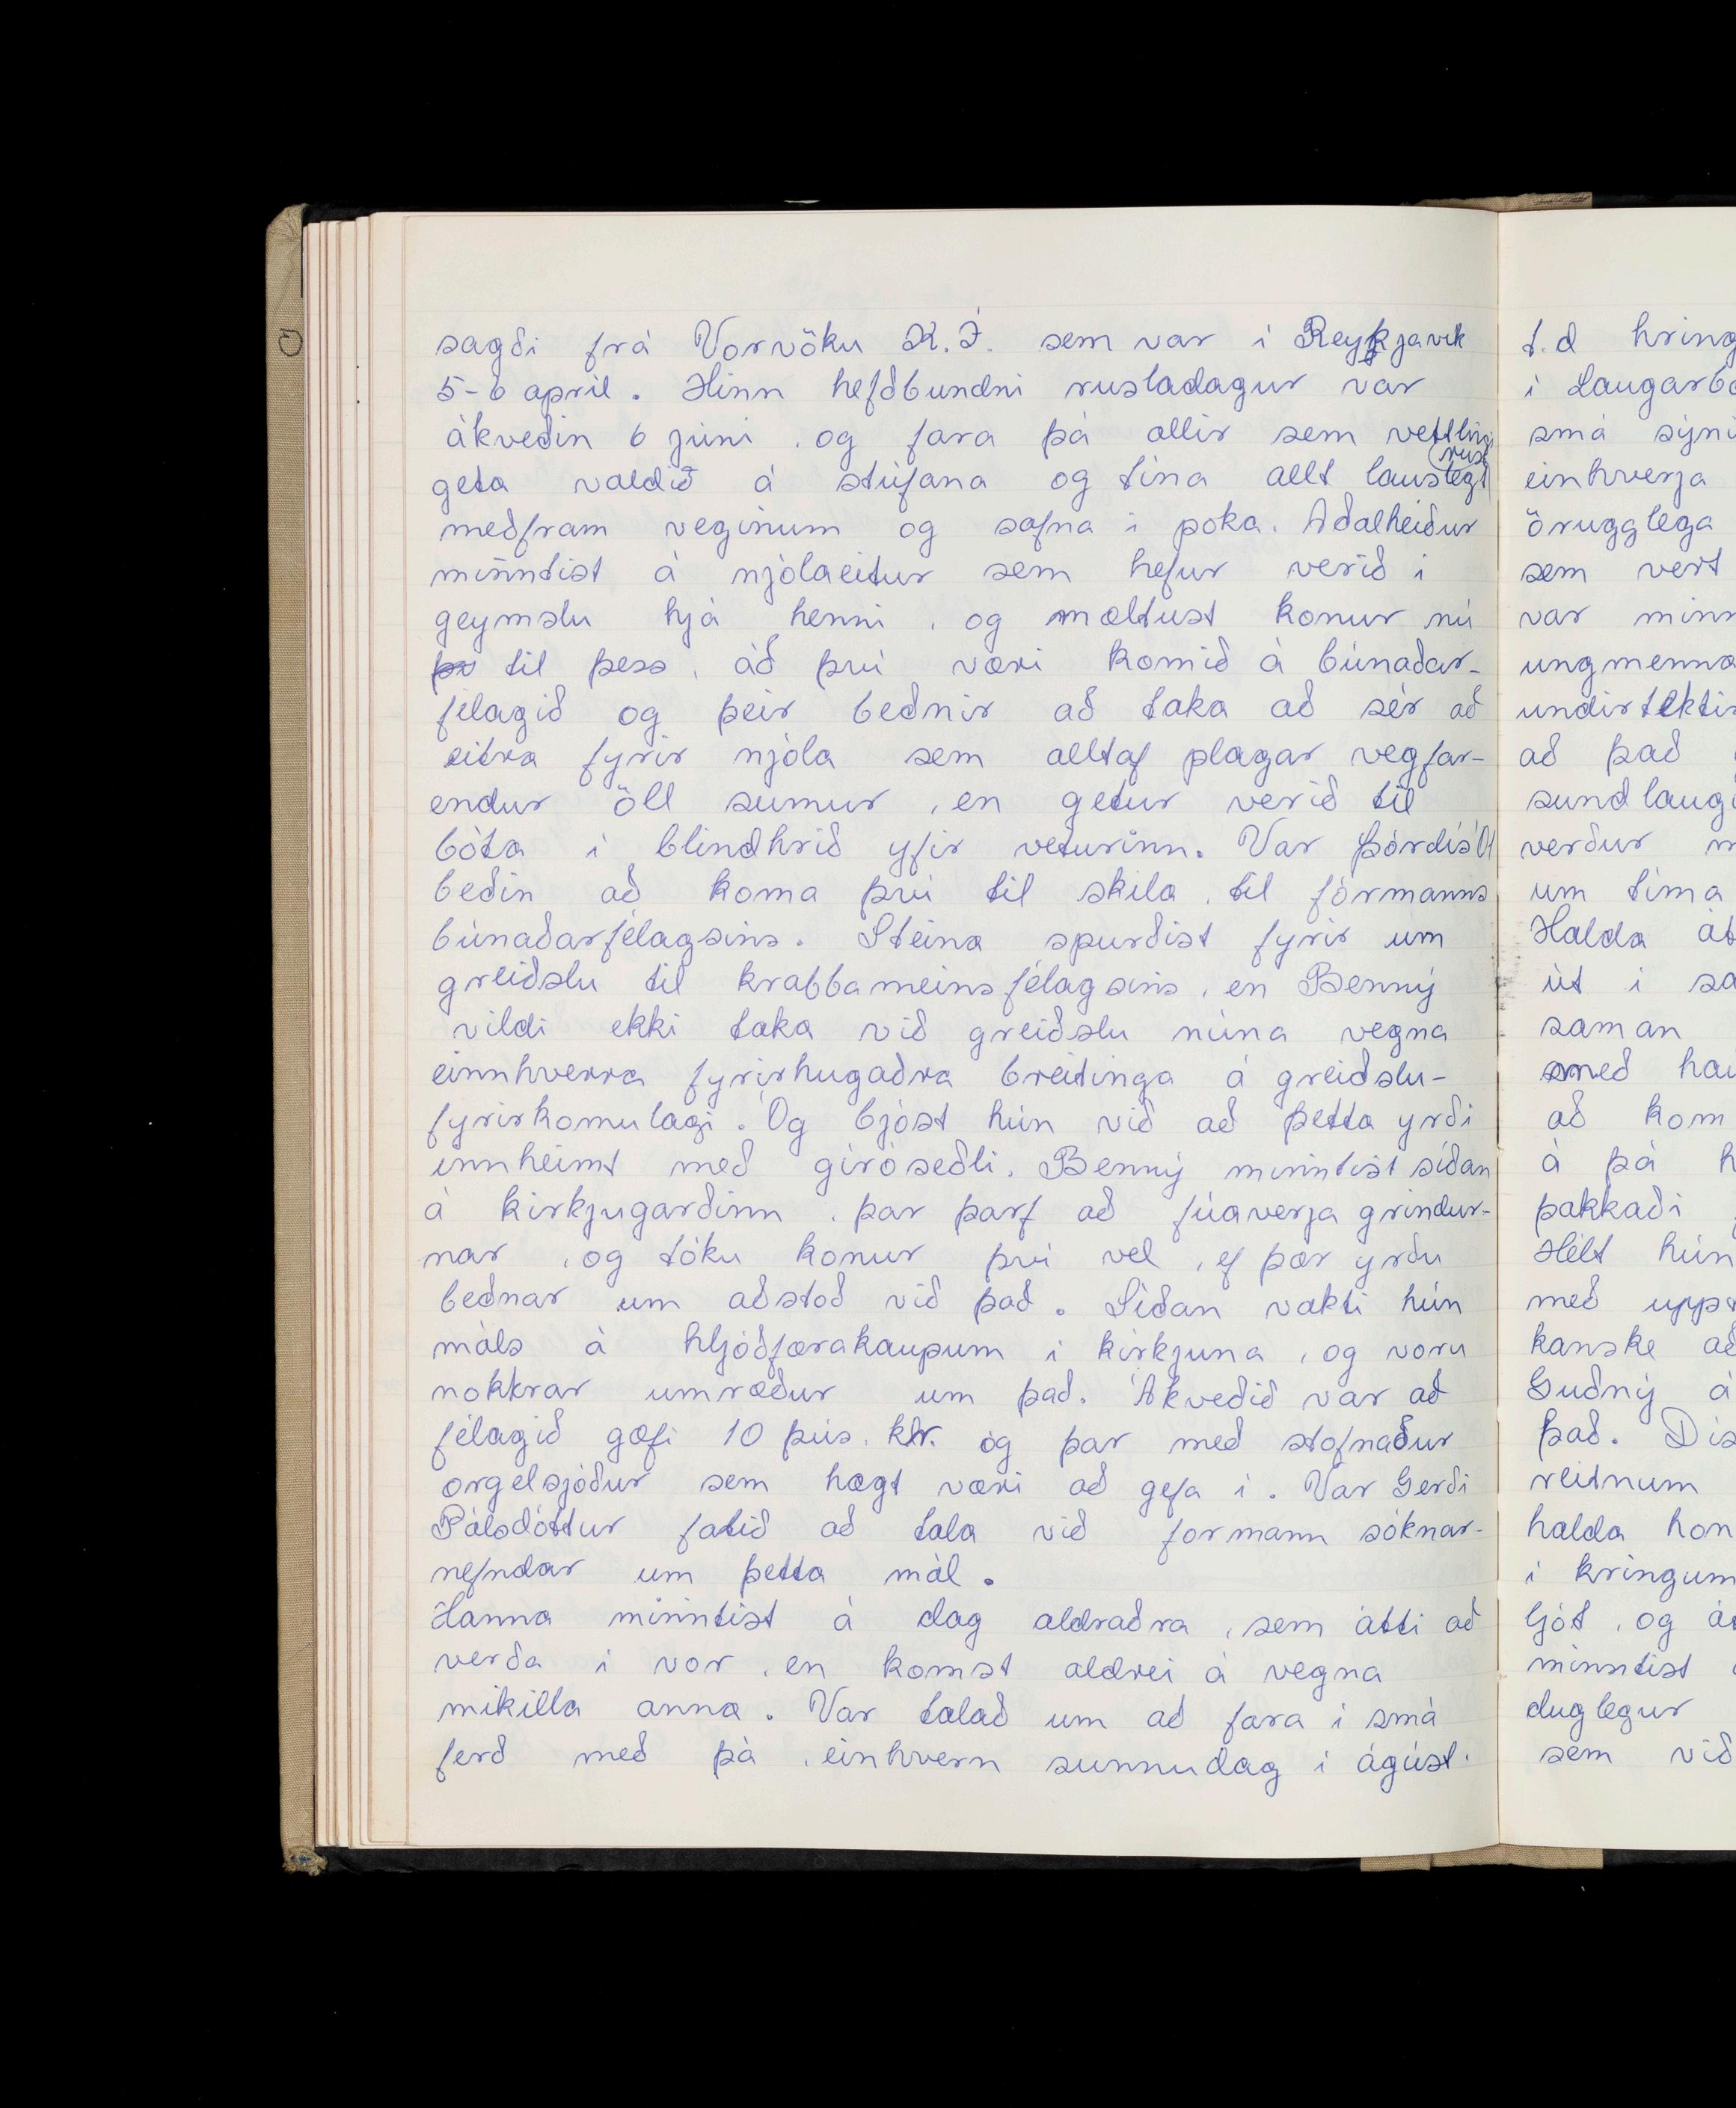 sagði frá Vorvöku K.Í. sem var í Reykjavík
5-6 apríl. Hinn hefðbundni rusladagur var
ákveðin 6 júní, og fara þá allir sem vettling
geta valdið á stúfana og tína allt lauslegt
rusl
meðfram veginum og safna í poka. Aðalheiður
minntist á njólaeitur sem hefur verið í
geymslu hjá henni, og mæltust konur nú
til þess, að því væri komið á búnaðar-
félagið og þeir beðnir að taka að sér að
eitra fyrir njóla sem alltaf plagar vegfar-
endur öll sumur, en getur verið til
bóta í blindhríð yfir veturinn. Var Þórdís
beðin að koma því til skila, til formanns
búnaðarfélagsins. Steina spurðist fyrir um
greiðslu til krabbameinsfélagsins, en Benný
vildi ekki taka við greiðslu núna vegna
einnhverra fyrirhugaðra breitinga á greiðslu-
fyrirkomulagi. Og bjóst hún við að þetta yrði
innheimt með gíróseðli. Benný minntist síðan
á kirkjugarðinn, þar þarf að fúaverja grindur-
nar, og tóku konur því vel, ef þær yrðu
beðnar um aðstoð við það. Síðan vakti hún
máls á hljóðfærakaupum í kirkjuna, og voru
nokkrar umræður um það. Ákveðið var að
félagið gæfi 10 þús. kr. og þar með stofnaður
orgelsjóður sem hægt væri að gefa í. Var Gerði
Pálsdóttur falið að tala við formann sóknar-
nefndar um þetta mál.
Hanna minntist á dag aldraðra, sem átti að
verða í vor, en komst aldrei á vegna
mikilla anna. Var talað um að fara í smá
ferð með þá, einhvern sunnudag í ágúst.
t.d hring
í Laugarb
smá sýni
einhverja
örugglega
sem vert
var minn
ungmenna
undirtektir
að það
sundlaug
verður
um tíma
Halda
út í sa
saman
með hau
að kom
á þá h
þakkaði
Hélt hún
með upps
kanske að
Guðný á
það. Dís
reitnum
halda hon
í kringum
ljót, og
minntist
duglegur
sem við